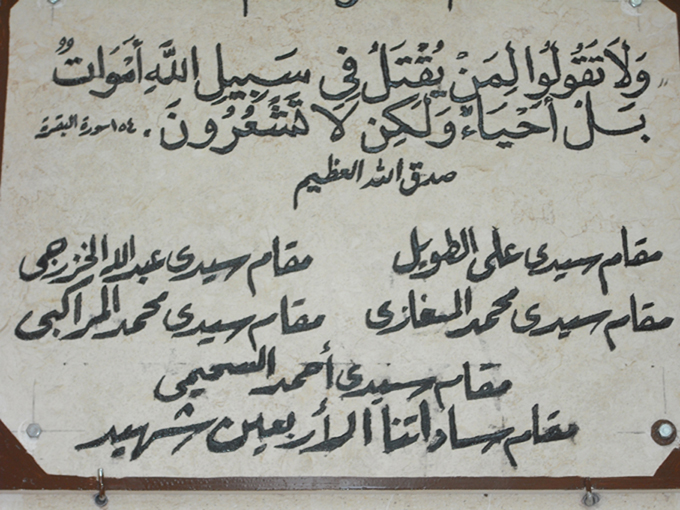 وَلَا تَقُولُوا لِمَنْ يُقْتَلُ فِي سَبِيلِ اللَّهِ أَمْوَاتٌ
بَلْ أَحْيَاءٌ وَلَكِن لَا تَشْعُرُونَ . ١٥٤ سورة البقرة
صدق الله العظيم
مقام سيدى على الطويل مقام سيدى عبدالله الخزرجى
مقام سيدى محمد المغازى مقام سيدى محمد المراكبى
مقام سيدى أحمد السحيمى
مقام ساداتنا الأربعين شهيد